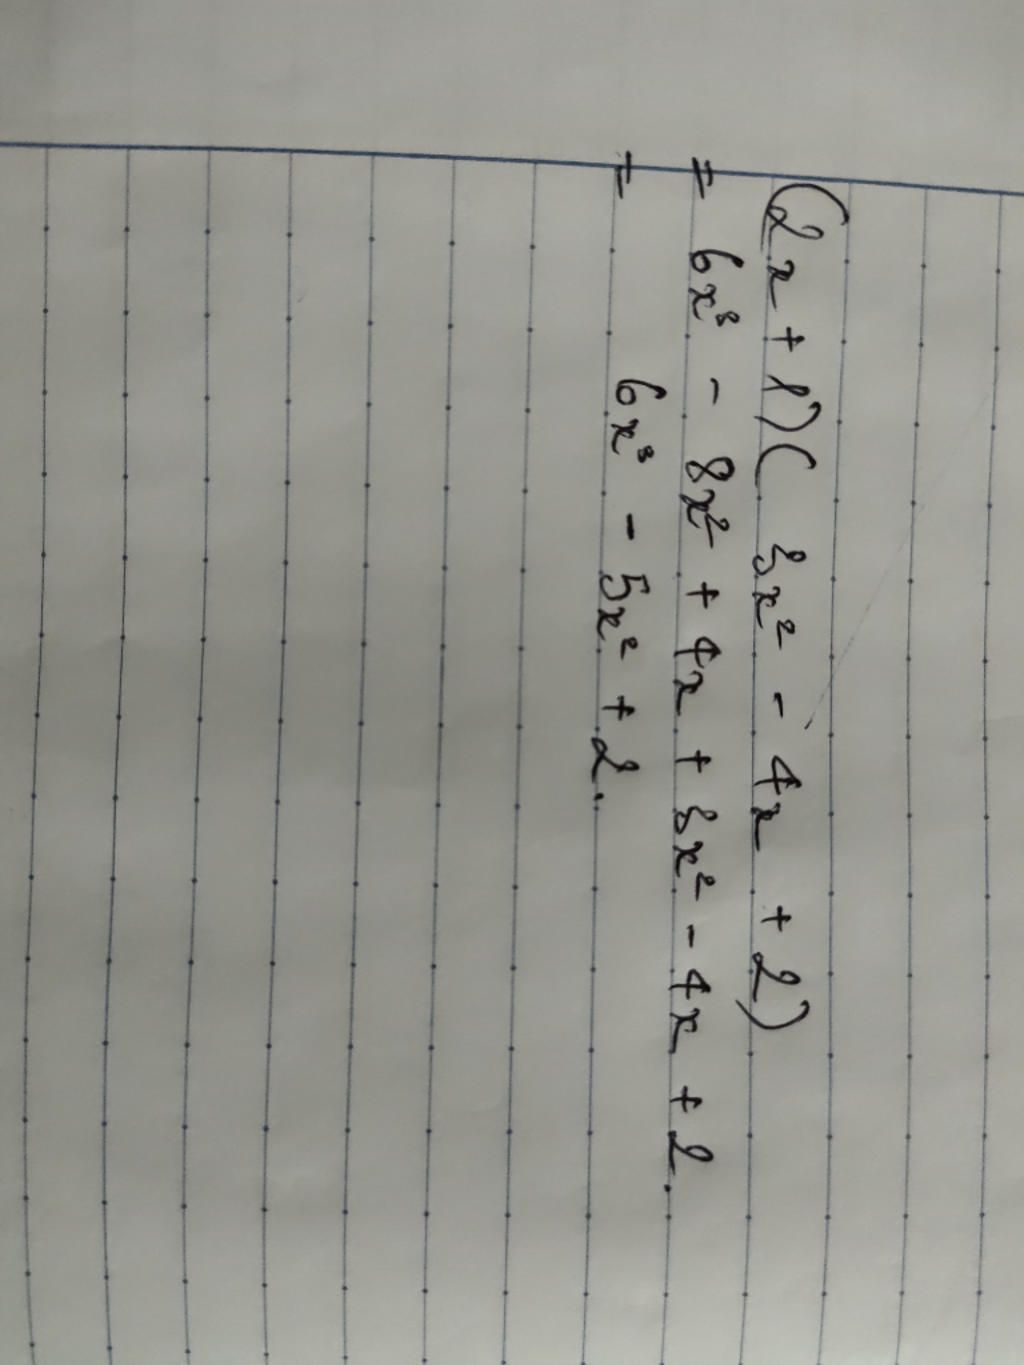 (2x + 1)( 3x² - 4x + 2)
= 6x³ - 8x² + 4x + 3x² - 4x + 2.
= 6x³ - 5x² + 2.